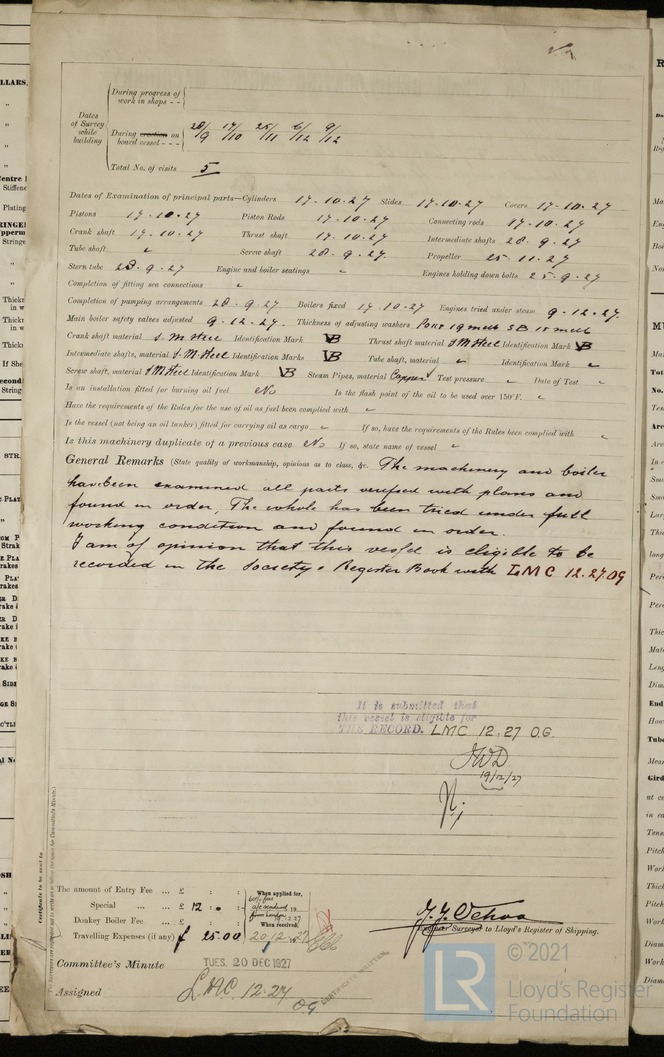 During progress of
work in shops - -
Dates
of Survey
while
building
During erection on
board vessel - - -
28/9 17/10 25/11 6/12 9/12
Total No. of visits 5
Dates of Examination of principal parts—Cylinders 17-10-27 Slides 17-10-27 Covers 17-10-27
Pistons 17-10-27 Piston Rods 17-10-27 Connecting rods 17-10-27
Crank shaft 17-10-27 Thrust shaft 17-10-27 Intermediate shafts 28-9-27
Tube shaft " Screw shaft 28-9-27 Propeller 25-11-27
Stern tube 28-9-27 Engine and boiler seatings " Engines holding down bolts 25-9-27
Completion of fitting sea connections "
Completion of pumping arrangements 28-9-27 Boilers fixed 17-10-27 Engines tried under steam 9-12-27.
Main boiler safety valves adjusted 9-12-27. Thickness of adjusting washers Port 19 mm SB 15 mm
Crank shaft material S.M Steel Identification Mark VB Thrust shaft material S.M Steel Identification Mark VB
Intermediate shafts, material S.M Steel Identification Marks VB Tube shaft, material " Identification Mark "
Screw shaft, material S.M Steel Identification Mark VB Steam Pipes, material Copper Test pressure " Date of Test "
Is an installation fitted for burning oil fuel No Is the flash point of the oil to be used over 150°F. "
Have the requirements of the Rules for the use of oil as fuel been complied with "
Is the vessel (not being an oil tanker) fitted for carrying oil as cargo " If so, have the requirements of the Rules been complied with "
Is this machinery duplicate of a previous case No If so, state name of vessel "
General Remarks (State quality of workmanship, opinions as to class, &c. The machinery and boiler
have been examined all parts verified with plans and
found in order, The whole has been tried under full
working condition and found in order.
I am of opinion that this vessel is eligible to be
recorded in the Society's Register Book with LMC 12.27.OG
It is submitted that
this vessel is eligible for
THE RECORD. LMC 12.27 O.G.
JWD
19/12/27
The amount of Entry Fee ... £ : :
Special ... £ 12 . 0 :
Donkey Boiler Fee ... £ : :
Travelling Expenses (if any) £ 25.00
When applied for,
When received,
20.12.27
J. J. Ochoa
Engineer Surveyor to Lloyd's Register of Shipping.
Committee's Minute TUES. 20 DEC 1927
Assigned L.M.C. 12.27
O.G.
CERTIFICATE WRITTEN
Certificate to be sent to
© 2021
LR
Lloyd's Register
Foundation